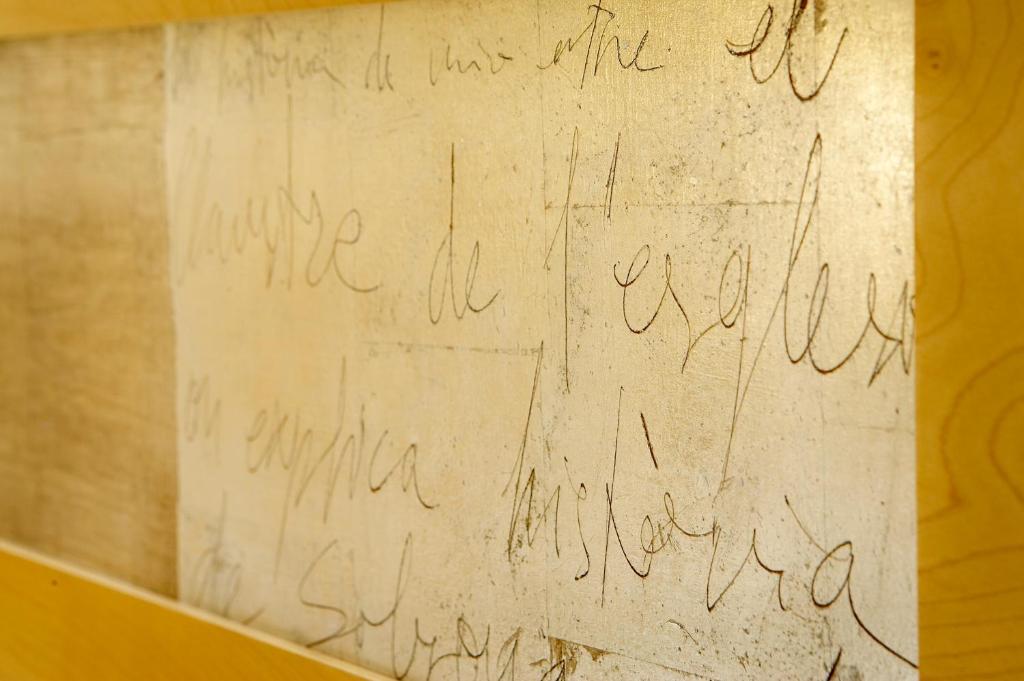 història de unió entre el
claustre de l'esglesi
on explica història
de Solsona